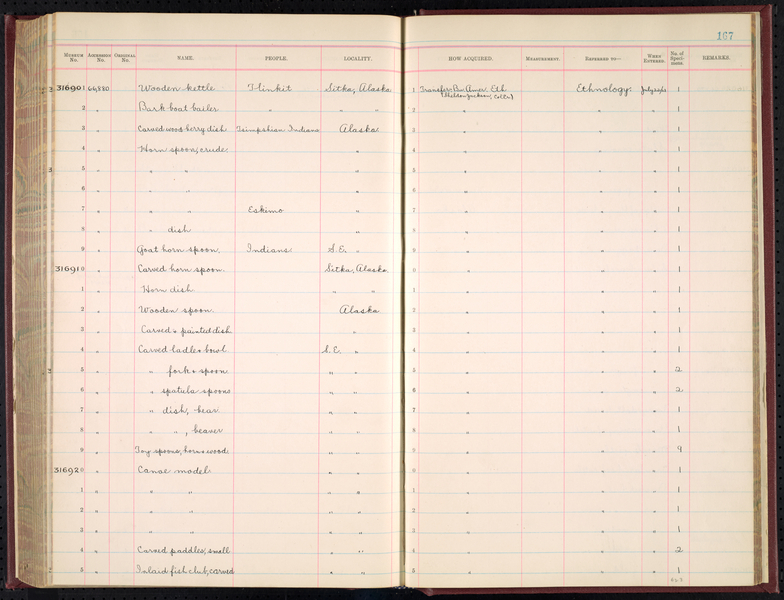 167
MUSEUM No. ACCESSION No. ORIGINAL No. NAME. PEOPLE. LOCALITY. HOW ACQUIRED. MEASUREMENT. REFERRED TO— WHEN ENTERED. No. of Specimens. REMARKS.
316901 Wooden kettle Tlinkit Sitka, Alaska. 1 Transfer Bu. Amer. Eth. Ethnology. 1
(Sheldon Jackson, Coll.)
2 " Bark boat bailer " " " 2 " " " 1
3 " Carved wood berry dish Tsimpshian Indians Alaska. 3 " " " 1
4 " Horn spoon, crude. " 4 " " " 1
5 " " " " 5 " " " 1
6 " " " " 6 " " " 1
7 " " " Eskimo " 7 " " " 1
8 " " dish " 8 " " " 1
9 " Goat horn spoon. Indians. S.E. " 9 " " " 1
316910 " Carved horn spoon. Sitka, Alaska. 0 " " " 1
1 " Horn dish " " 1 " " " 1
2 " Wooden spoon. Alaska 2 " " " 1
3 " Carved & painted dish " 3 " " " 1
4 " Carved ladle & bowl S.E. " 4 " " " 1
5 " " fork & spoon " " 5 " " " 2
6 " " spatula spoons " " 6 " " " 2
7 " " dish, bear " " 7 " " " 1
8 " " " , beaver " " 8 " " " 1
9 " Toy spoons, horn & wood " " 9 " " " 9
316920 " Canoe model " " 0 " " " 1
1 " " " " " 1 " " " 1
2 " " " " " 2 " " " 1
3 " " " " " 3 " " " 1
4 " Carved paddles, small " " 4 " " " 2
5 " Inlaid fish club, carved " " 5 " " " 1